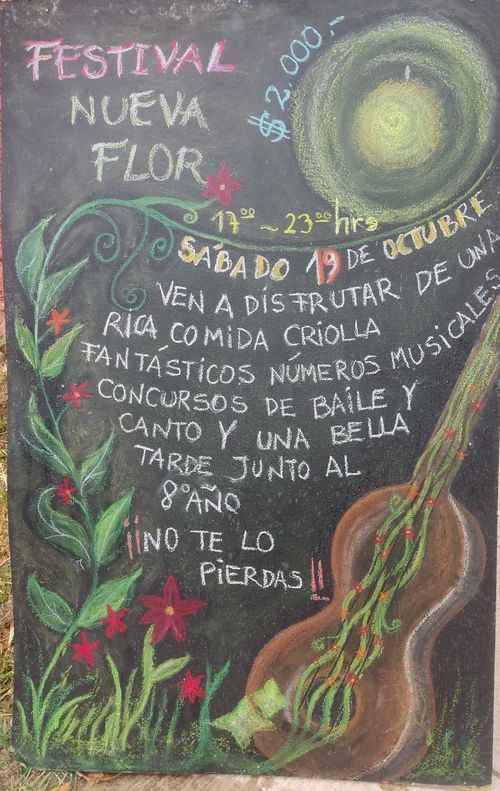 FESTIVAL
NUEVA
FLOR
$2.000.-
17⁰⁰ ~ 23⁰⁰ hrs
SÁBADO 19 DE OCTUBRE
VEN A DISFRUTAR DE UNA
RICA COMIDA CRIOLLA
FANTÁSTICOS NÚMEROS MUSICALES
CONCURSOS DE BAILE Y
CANTO Y UNA BELLA
TARDE JUNTO AL
8°AÑO
¡¡NO TE LO
PIERDAS!!